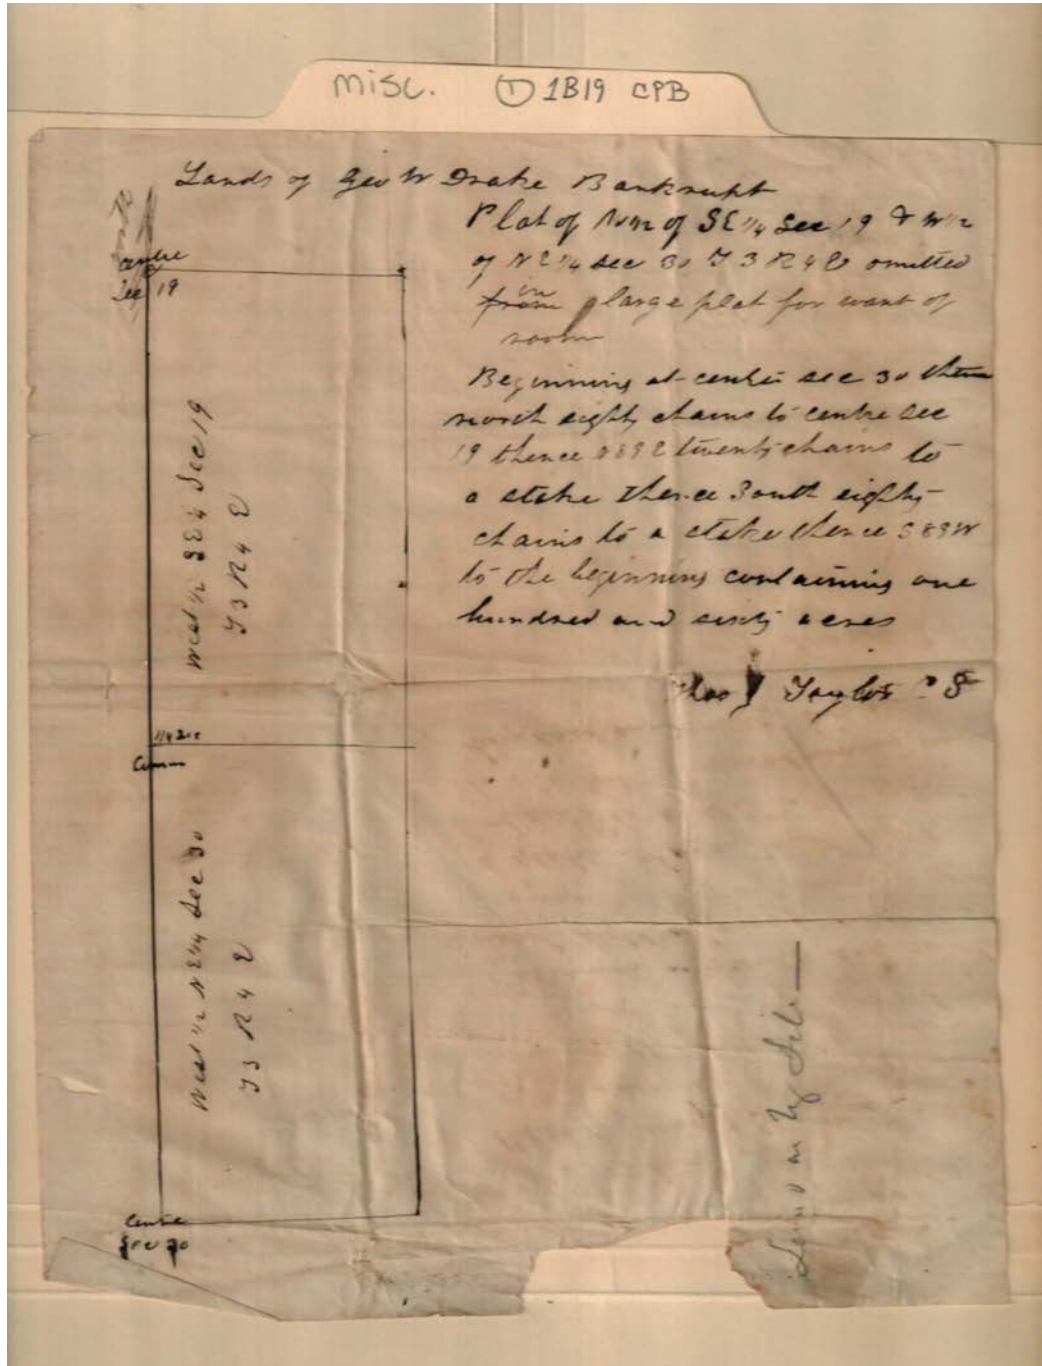 misc. ① 1B19 CPB
Lands of Geo W Drake Bankrupt
Plat of of SE 1/4 Sec 19 & W 1/2
of N E 1/4 Sec 30 T 3 R 4 E omitted
from in large plat for want of
room
Beginning at centre sec 30 thence
north eighty chains to centre sec
19 thence twenty chains to
a stake thence South eighty
chains to a stake thence S 89 W
to the beginning containing one
hundred and sixty acres
Taylor C S
centre
Sec 19
West 1/2 S E 4 Sec 19
T 3 R 4 E
1/4 Sec
West 1/2 N E 1/4 Sec 30
T 3 R 4 E
Centre
Sec 30